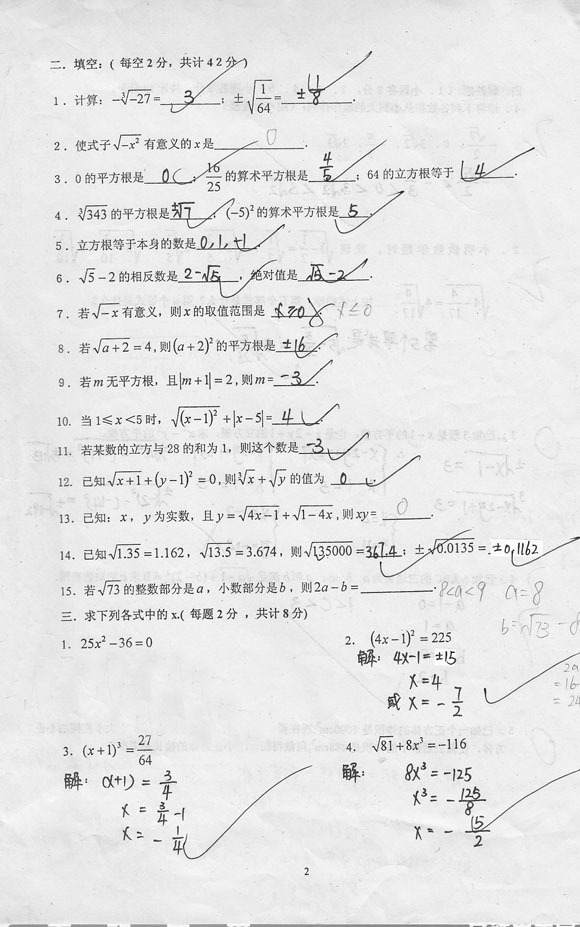 二．填空：( 每空2分，共计42分 )
1．计算：-∛-27= 3 ；±√(1/64)= ±1/8
2．使式子√-x² 有意义的x是 0 .
3．0的平方根是 0 ；16/25 的算术平方根是 4/5 ；64的立方根等于 4
4．∛343 的平方根是 ±√7 ；(-5)²的算术平方根是 5 .
5．立方根等于本身的数是 0,1,+1 .
6．√5-2的相反数是 2-√5 ，绝对值是 √5-2 .
7．若√-x有意义，则x的取值范围是 x≥0 . x≤0
8．若√a+2=4,则(a+2)²的平方根是 ±16 .
9．若m无平方根，且|m+1|=2,则m= -3 .
10. 当1≤x<5时，√(x-1)²+|x-5|= 4
11. 若某数的立方与28的和为1，则这个数是 -3
12. 已知√x+1+(y-1)²=0,则∛x+√y的值为 0 .
13. 已知：x，y为实数，且y=√4x-1+√1-4x,则xy= 0 .
14. 已知√1.35=1.162，√13.5=3.674，则√135000= 367.4 ；±√0.0135= ±0.1162
15. 若√73的整数部分是a，小数部分是b，则2a-b= . 8<a<9 a=8
b=√73-8
2a
=16-
=24
三．求下列各式中的x.( 每题2分 ，共计8分)
1. 25x²-36=0
2. (4x-1)²=225
解: 4x-1=±15
x=4
或 x=-7/2
3. (x+1)³=27/64
解: (x+1)=3/4
x=3/4-1
x=-1/4
4. √81+8x³=-116
解: 8x³=-125
x³=-125/8
x=-15/2
2